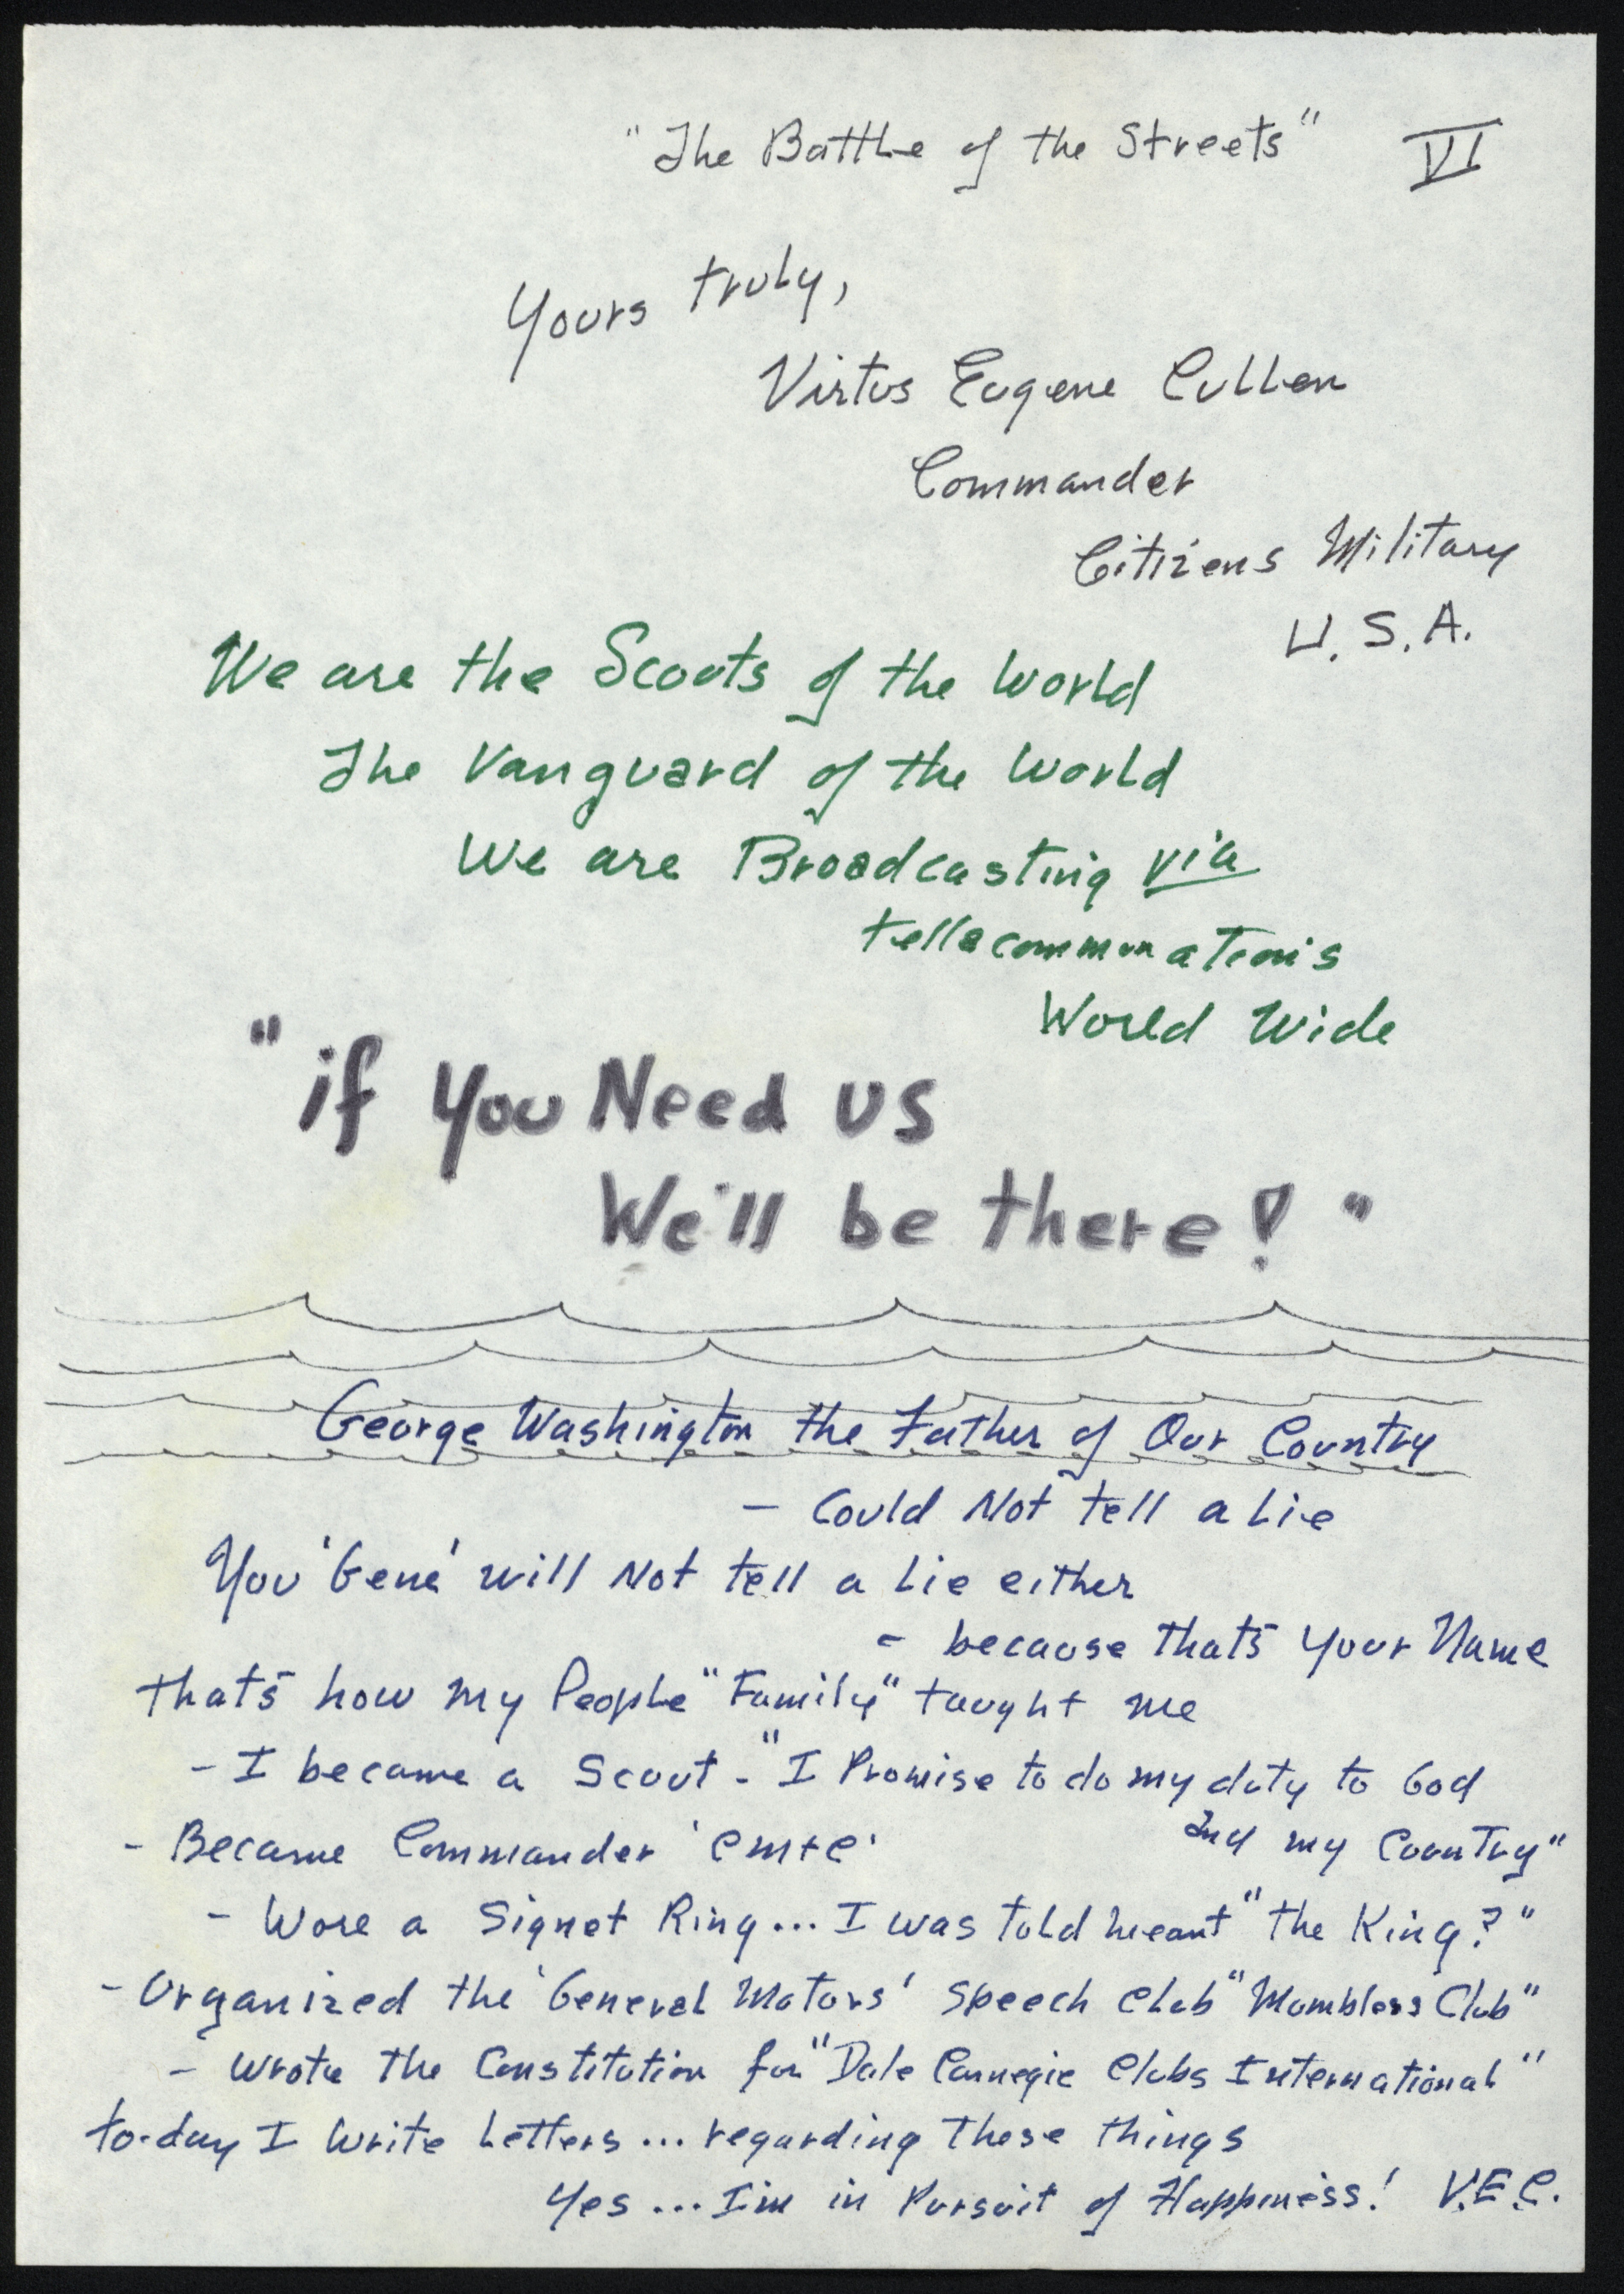 "The Battle of the Streets" VI
Yours truly,
Virtus Eugene Cullen
Commander
Citizens Military
U.S.A.
We are the Scouts of the World
The Vanguard of the World
We are Broadcasting via
World Wide
"if You Need us
We'll be there!"
George Washington the Father of Our Country
- Could Not tell a Lie
You 'Gene' will Not tell a Lie either
- because that's your Name
that's how my People "Family" taught me
- I became a Scout - "I Promise to do my duty to God
and my Country"
- Became Commander
- Wore a Signet Ring... I was told meant "the King?"
- Organized the 'General Motors' Speech Club "Mumblers Club"
- wrote the Constitution for "Dale Carnegie Clubs International"
to-day I write Letters... regarding these things
Yes... I'm in Pursuit of Happiness! V.E.C.